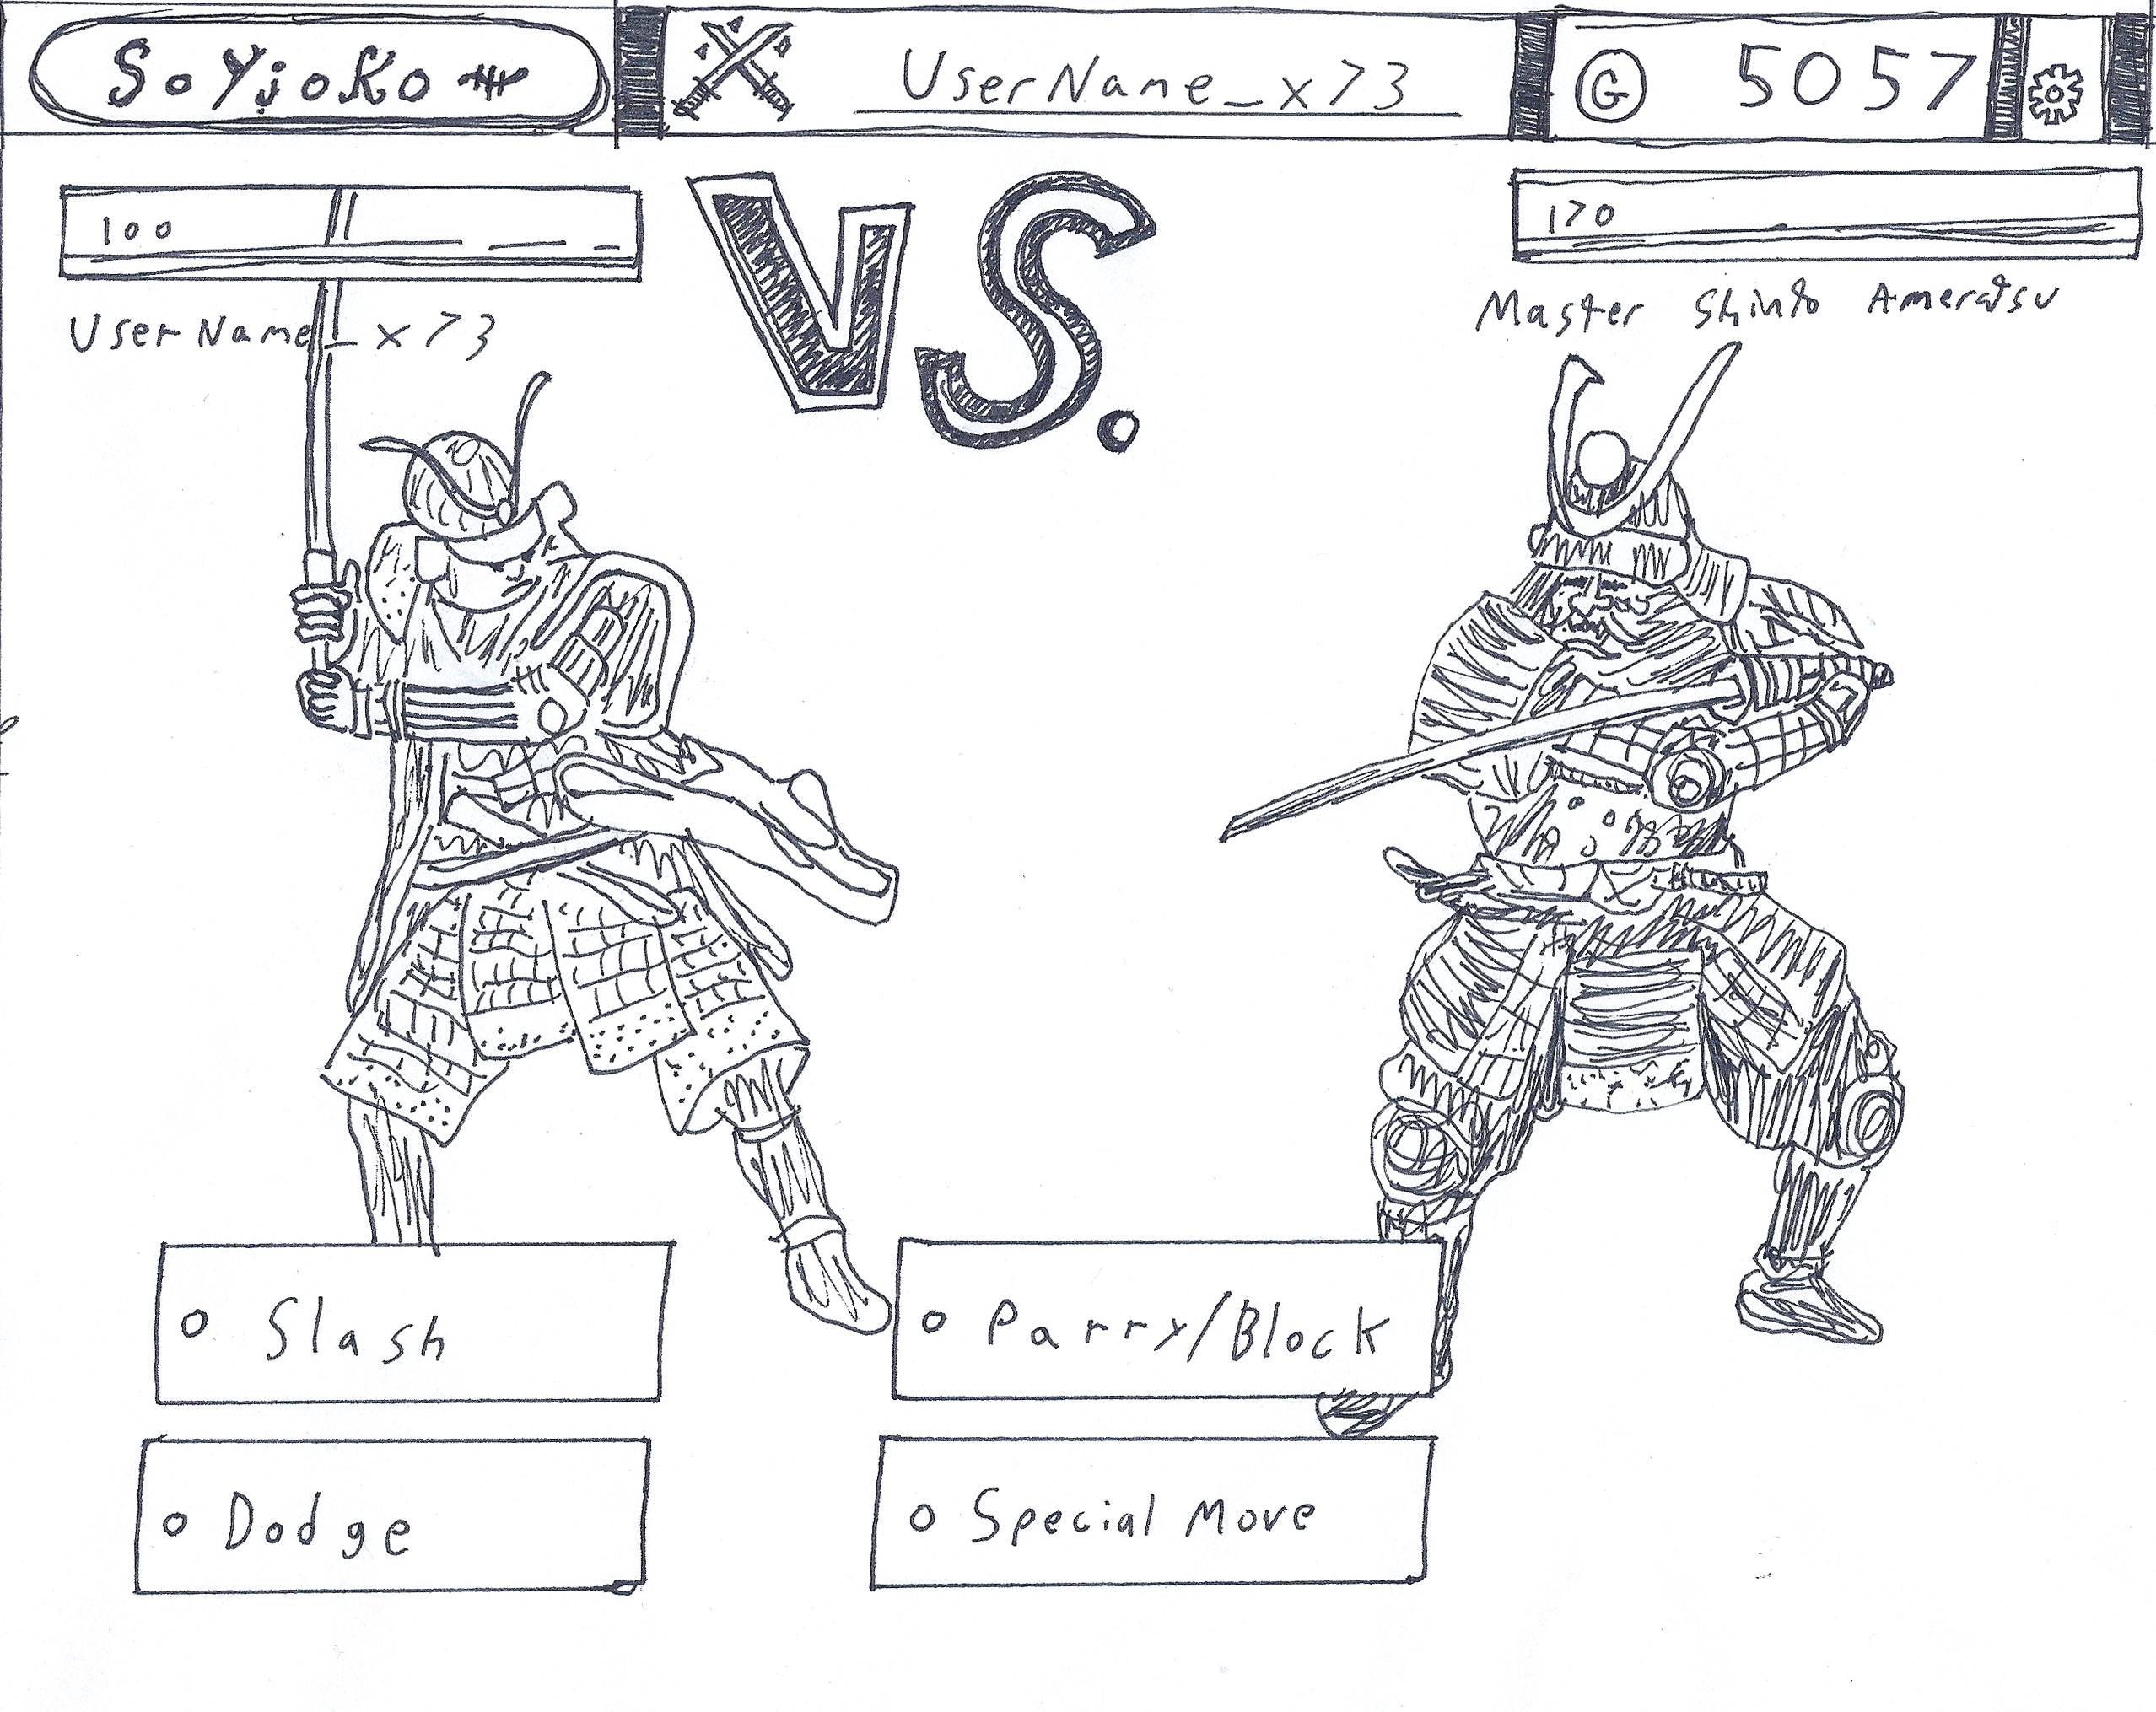 SoYjoKo
UserName_x73
G 5057
100
170
VS.
UserName_x73
Master Shinto Ameratsu
Slash
Parry/Block
Dodge
Special Move